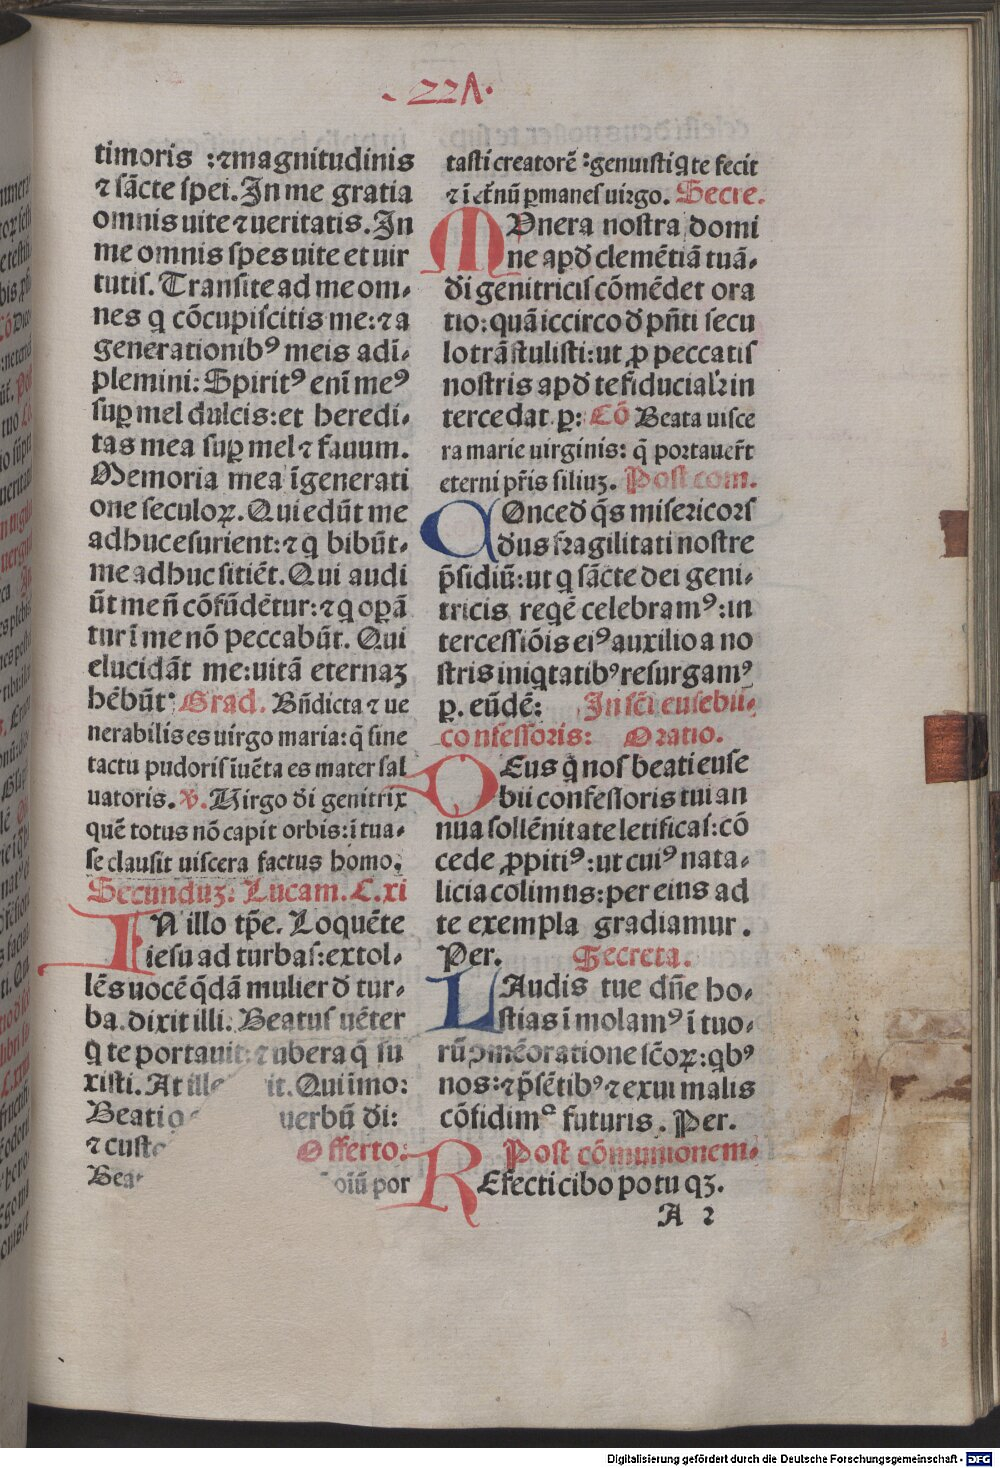 ·221·
timoris :⁊magnitudinis
⁊ sācte spei. In me gratia
omnis uite ⁊ueritatis. In
me omnis spes uite et uir
tutis. Transite ad me om-
nes q cōcupiscitis me:⁊ a
generationibꝰ meis adī-
plemini: Spiritꝰ enī meꝰ
suꝑ mel dulcis:et heredi-
tas mea suꝑ mel ⁊ fauum.
Memoria mea īgenerati
one seculoꝝ. Qui edūt me
adhuc esurient:⁊ q bibūt-
me adhuc sitiēt. Qui audi
ūt me n̄ cōfūdētur:⁊ q oꝑā
tur ī me nō peccabūt. Qui
elucidāt me:uitā eternaꝫ
hēbūt: Grad. Bn̄dicta ⁊ ue
nerabilis es uirgo maria:q̄ sine
tactu pudoris īuēta es mater sal
uatoris. ℣. Uirgo di genitrix
quē totus nō capit orbis:ī tua-
se clausit uiscera factus homo.
Secunduꝫ. Lucam. C. xi
IN illo tꝑe. Loquēte
iesu ad turbas:extol-
lēs uocē q̄dā mulier đ tur-
ba.dixit illi. Beatus uēter
q te portauit:⁊ ubera q̄ su
xisti. At ille it. Quiimo:
Beati q uerbū di:
⁊ custo Offerto:
Bea oiū por
tasti creatorē :genuisti q te fecit
⁊ ī et̄nū ꝑmanes uirgo. Secre.
MUnera nostra domi
ne apđ clemētiā tuā-
di genitricis cōmēdet ora
tio:quā iccirco đ pn̄ti secu
lo trāstulisti:ut ꝓ peccatis
nostris apđ te fiducialr̄ in
tercedat ꝑ: Cō Beata uisce
ra marie uirginis: q̄ portauer̄t
eterni pr̄is filiuꝫ. Post com.
COnceđ q̄s misericors
đus fragilitati nostre
p̄sidiū:ut q sācte dei geni-
tricis reqē celebramꝰ:in
tercessiōis eiꝰ auxilio a no
stris iniqtatibꝰ resurgamꝰ
ꝑ. eūdē: In sc̄i eusebii-
confessoris: Oratio.
DEus q̄ nos beati euse
bii confessoris tui an
nua sollēnitate letificas:cō
cede ꝓpitiꝰ:ut cuiꝰ nata-
licia colimus:per eius ad
te exempla gradiamur.
Per. Secreta.
LAudis tue dn̄e ho-
stias ī molamꝰ ī tuo-
rū ꝯmēoratione sc̄oꝝ:qbꝰ
nos:⁊ p̄sētibꝰ ⁊ exui malis
cōfidimꝰ futuris. Per.
Post cōmunionem-
REfecti cibo potu qꝫ.
A 2
Digitalisierung gefördert durch die Deutsche Forschungsgemeinschaft - DFG